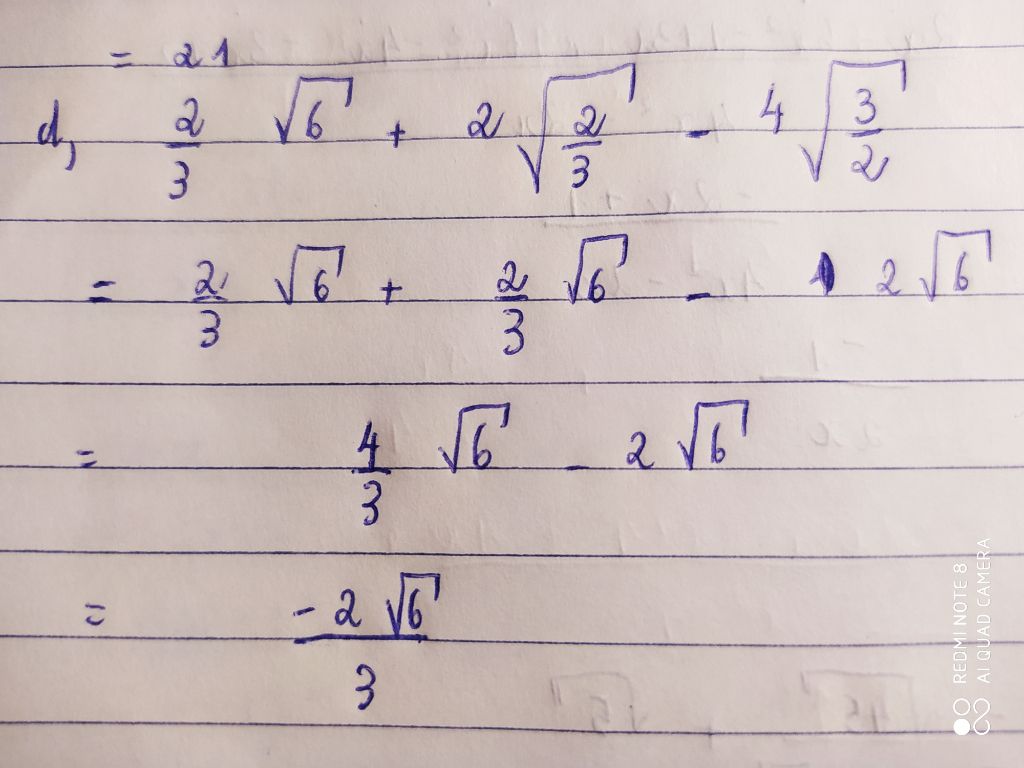 = 21
d, 2/3 √6 + 2 √(2/3) - 4 √(3/2)
= 2/3 √6 + 2/3 √6 - 2 √6
= 4/3 √6 - 2 √6
= -2 √6 / 3
REDMI NOTE 8
AI QUAD CAMERA